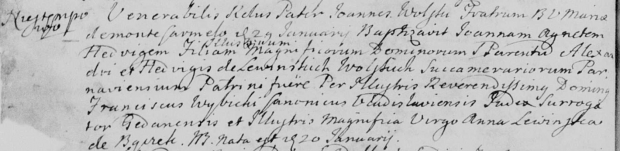 Venerabilis Rdus Pater Joannes Wolski Fratrum B V. Mariæ
de monte Carmelo 1829 Januarij Baptisavit Joannam Agnetem
Hedvigem Filiam Magnificorum Dominorum Parentum Alexan
Illustrium
dri et Hedvigis de Lewinskich Wolskich Succamerariorum Par
naviensium Patrini fuere Per Illustris Reverendissimus Dominus
Franciscus Wybicki Canonicus Vladislaviensis Judex Surroga
tor Gedanensis et Illustris Magnifica Virgo Anna Lewinska
de Nata est 1820 Januarij.